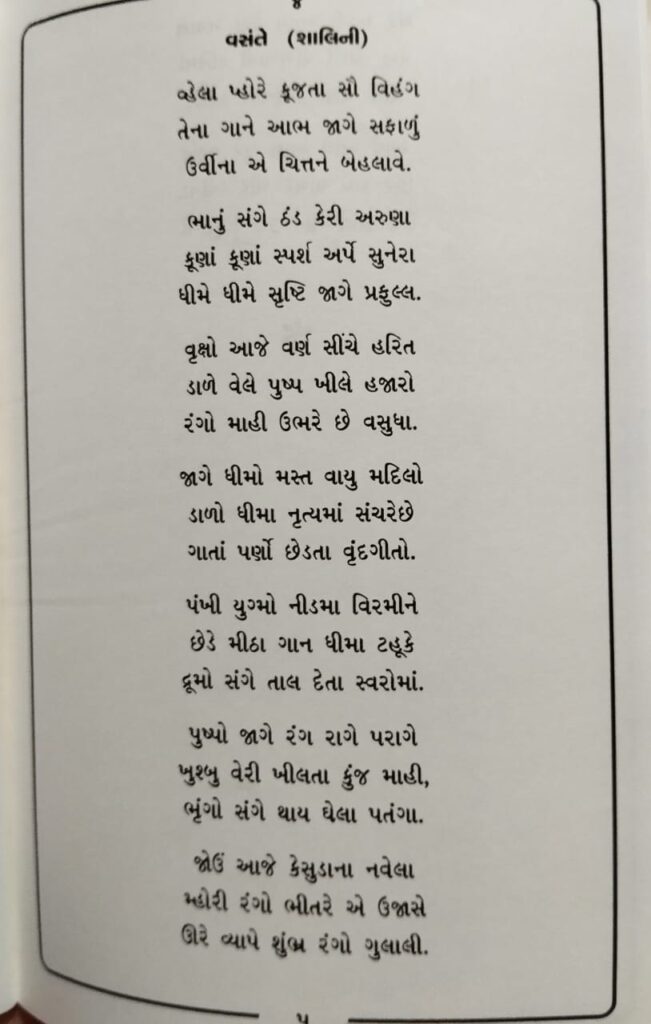 ૪
વસંતે (શાલિની)
વ્હેલા પ્હોરે કૂજતા સૌ વિહંગ
તેના ગાને આભ જાગે સફાળું
ઉર્વીના એ ચિત્તને બેહલાવે.
ભાનું સંગે ઠંડ કેરી અરુણા
કૂણાં કૂણાં સ્પર્શ અર્પે સુનેરા
ધીમે ધીમે સૃષ્ટિ જાગે પ્રફુલ્લ.
વૃક્ષો આજે વર્ણ સીંચે હરિત
ડાળે વેલે પુષ્પ ખીલે હજારો
રંગો માહી ઉભરે છે વસુધા.
જાગે ધીમો મસ્ત વાયુ મદિલો
ડાળો ધીમા નૃત્યમાં સંચરેછે
ગાતાં પર્ણો છેડતા વૃંદગીતો.
પંખી યુગ્મો નીડમા વિરમીને
છેડે મીઠા ગાન ધીમા ટહૂકે
દ્રૂમો સંગે તાલ દેતા સ્વરોમાં.
પુષ્પો જાગે રંગ રાગે પરાગે
ખુશ્બુ વેરી ખીલતા કુંજ માહી,
ભૃંગો સંગે થાય ઘેલા પતંગા.
જોઉં આજે કેસુડાના નવેલા
મ્હોરી રંગો ભીતરે એ ઉજાસે
ઊરે વ્યાપે શુંભ્ર રંગો ગુલાલી.
૫